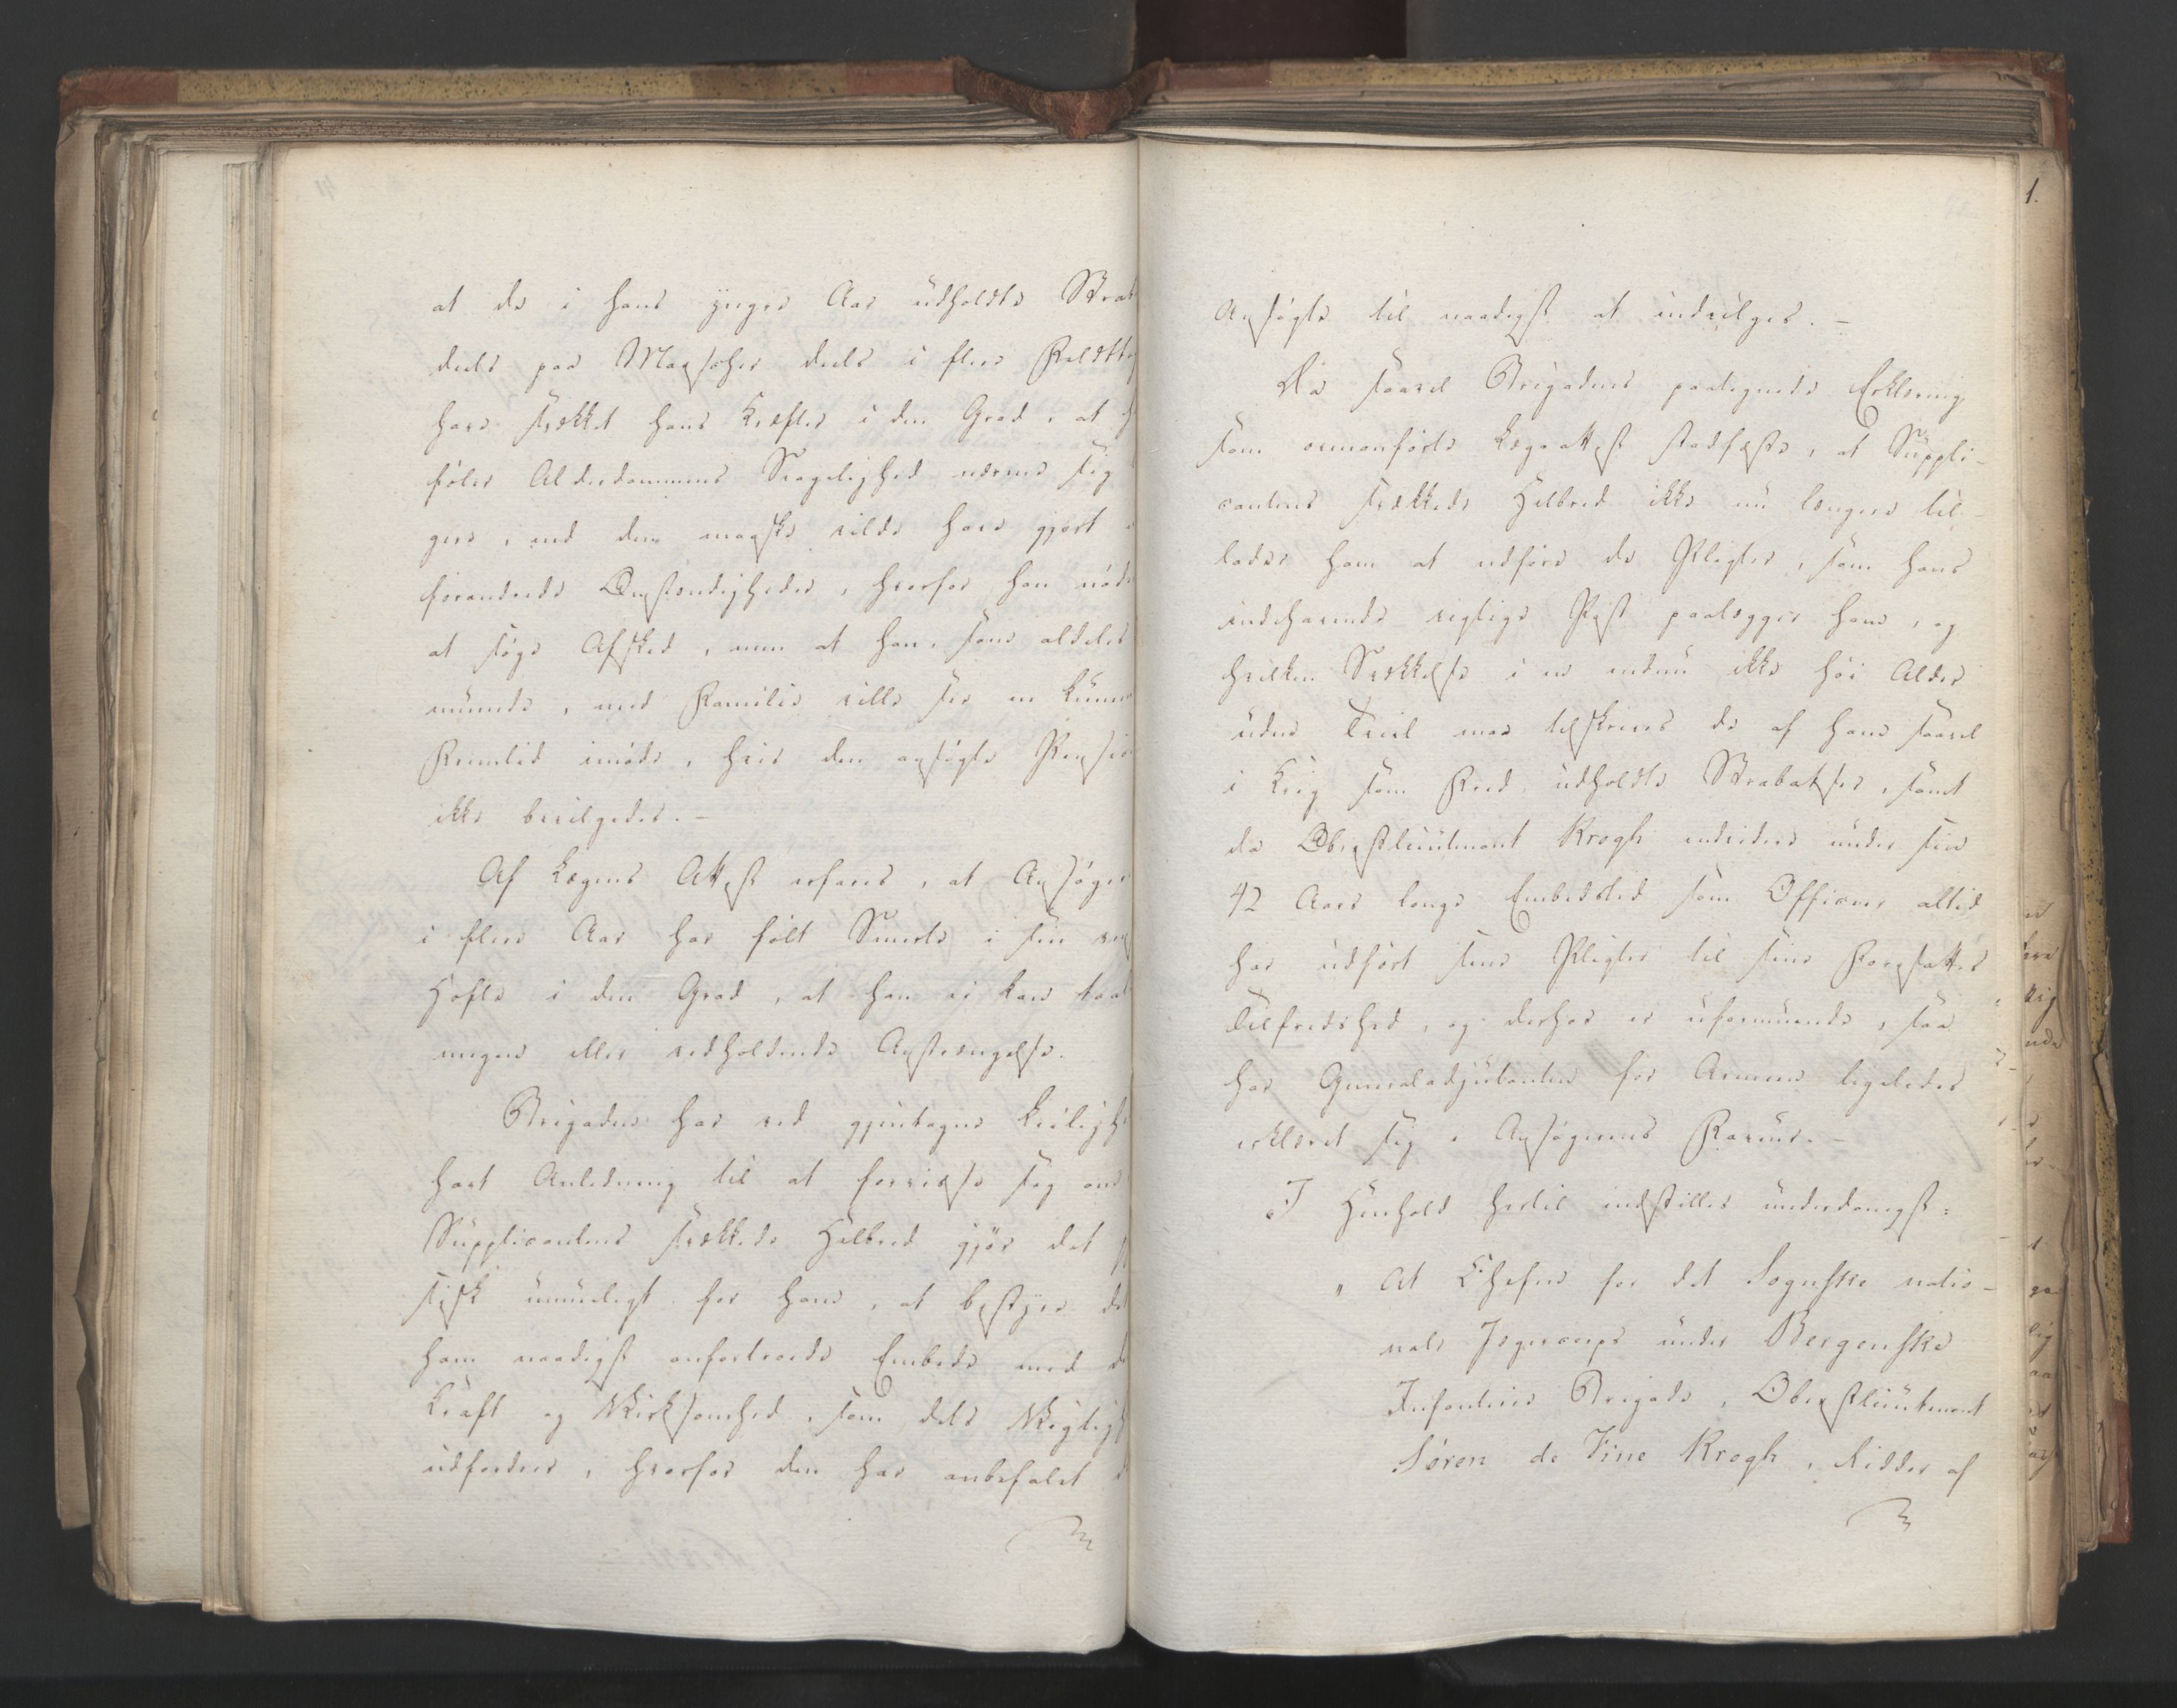 at de i hans yngre Aar udholdte Strab
deels paa Marscher deels i flere Feldttog
have svækket hans Kræfter i den Grad, at
føler Alderdommens Svagelighed nærme sig
gere, end den maaske vilde have gjort
forandrede Omstændigheder, hvorfor han nødes
at søge Afsked, men at han, som aldeles
muende, med Familie ville see en kummer
Fremtid imøde, hvis den ansøgte Pension
ikke bevilgedes. –
Af Lægens Attest erfares, at Ansøger
i flere Aar har følt Smerte i sin
Hofte i den Grad, at han ei kan taal
megen eller vedholdende Anstrængelse.
Brigaden har ved gjentagne Leiligh
havt Anledning til at forvisse sig om
Supplicantens svækkede Helbred gjør det
sisk umueligt for ham, at bestyre det
ham naadigst anfortroede Embede med d
Kraft og Virksomhed, som dets Vigtigh
udfordrer, hvorfor den har anbefalet
1.
Ansøgte til naadigst at indvilges. –
Da saavel Brigadens paategnede Erklæring
som ovenanførte Lægeattest stadfæste, at Suppli-
cantens svækkede Helbred ikke nu længere til-
lader ham at udføre de Pligter, som hans
indehavende vigtige Post paalægger ham, og
hvilken Svækkelse i en endnu ikke høi Alder
uden Tvivl maa tilskrives de af ham saavel
i Krig som Fred udholdte Strabatser, samt
da Oberstlieutenant Krogh endvidere under sin
42 Aars lange Embedstid som Officeer altid
har udført sine Pligter til sine Foresattes
Tilfredshed, og derhos er uformuende, saa
har Generaladjutanten for Armeen ligeledes
erklæret sig i Ansøgerens Faveur. –
I Henhold hertil indstilles underdanigst:
" At Chefen for det Sognske natio-
nale Jægercorps under Bergenske
Infanterie Brigade, Oberstlieutenant
Søren de Fine Krogh, Ridder af